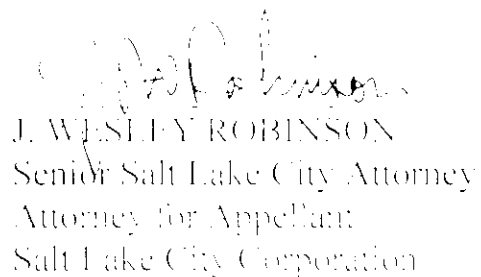 J W Robinson
J. WESLEY ROBINSON
Senior Salt Lake City Attorney
Attorney for Appellant
Salt Lake City Corporation